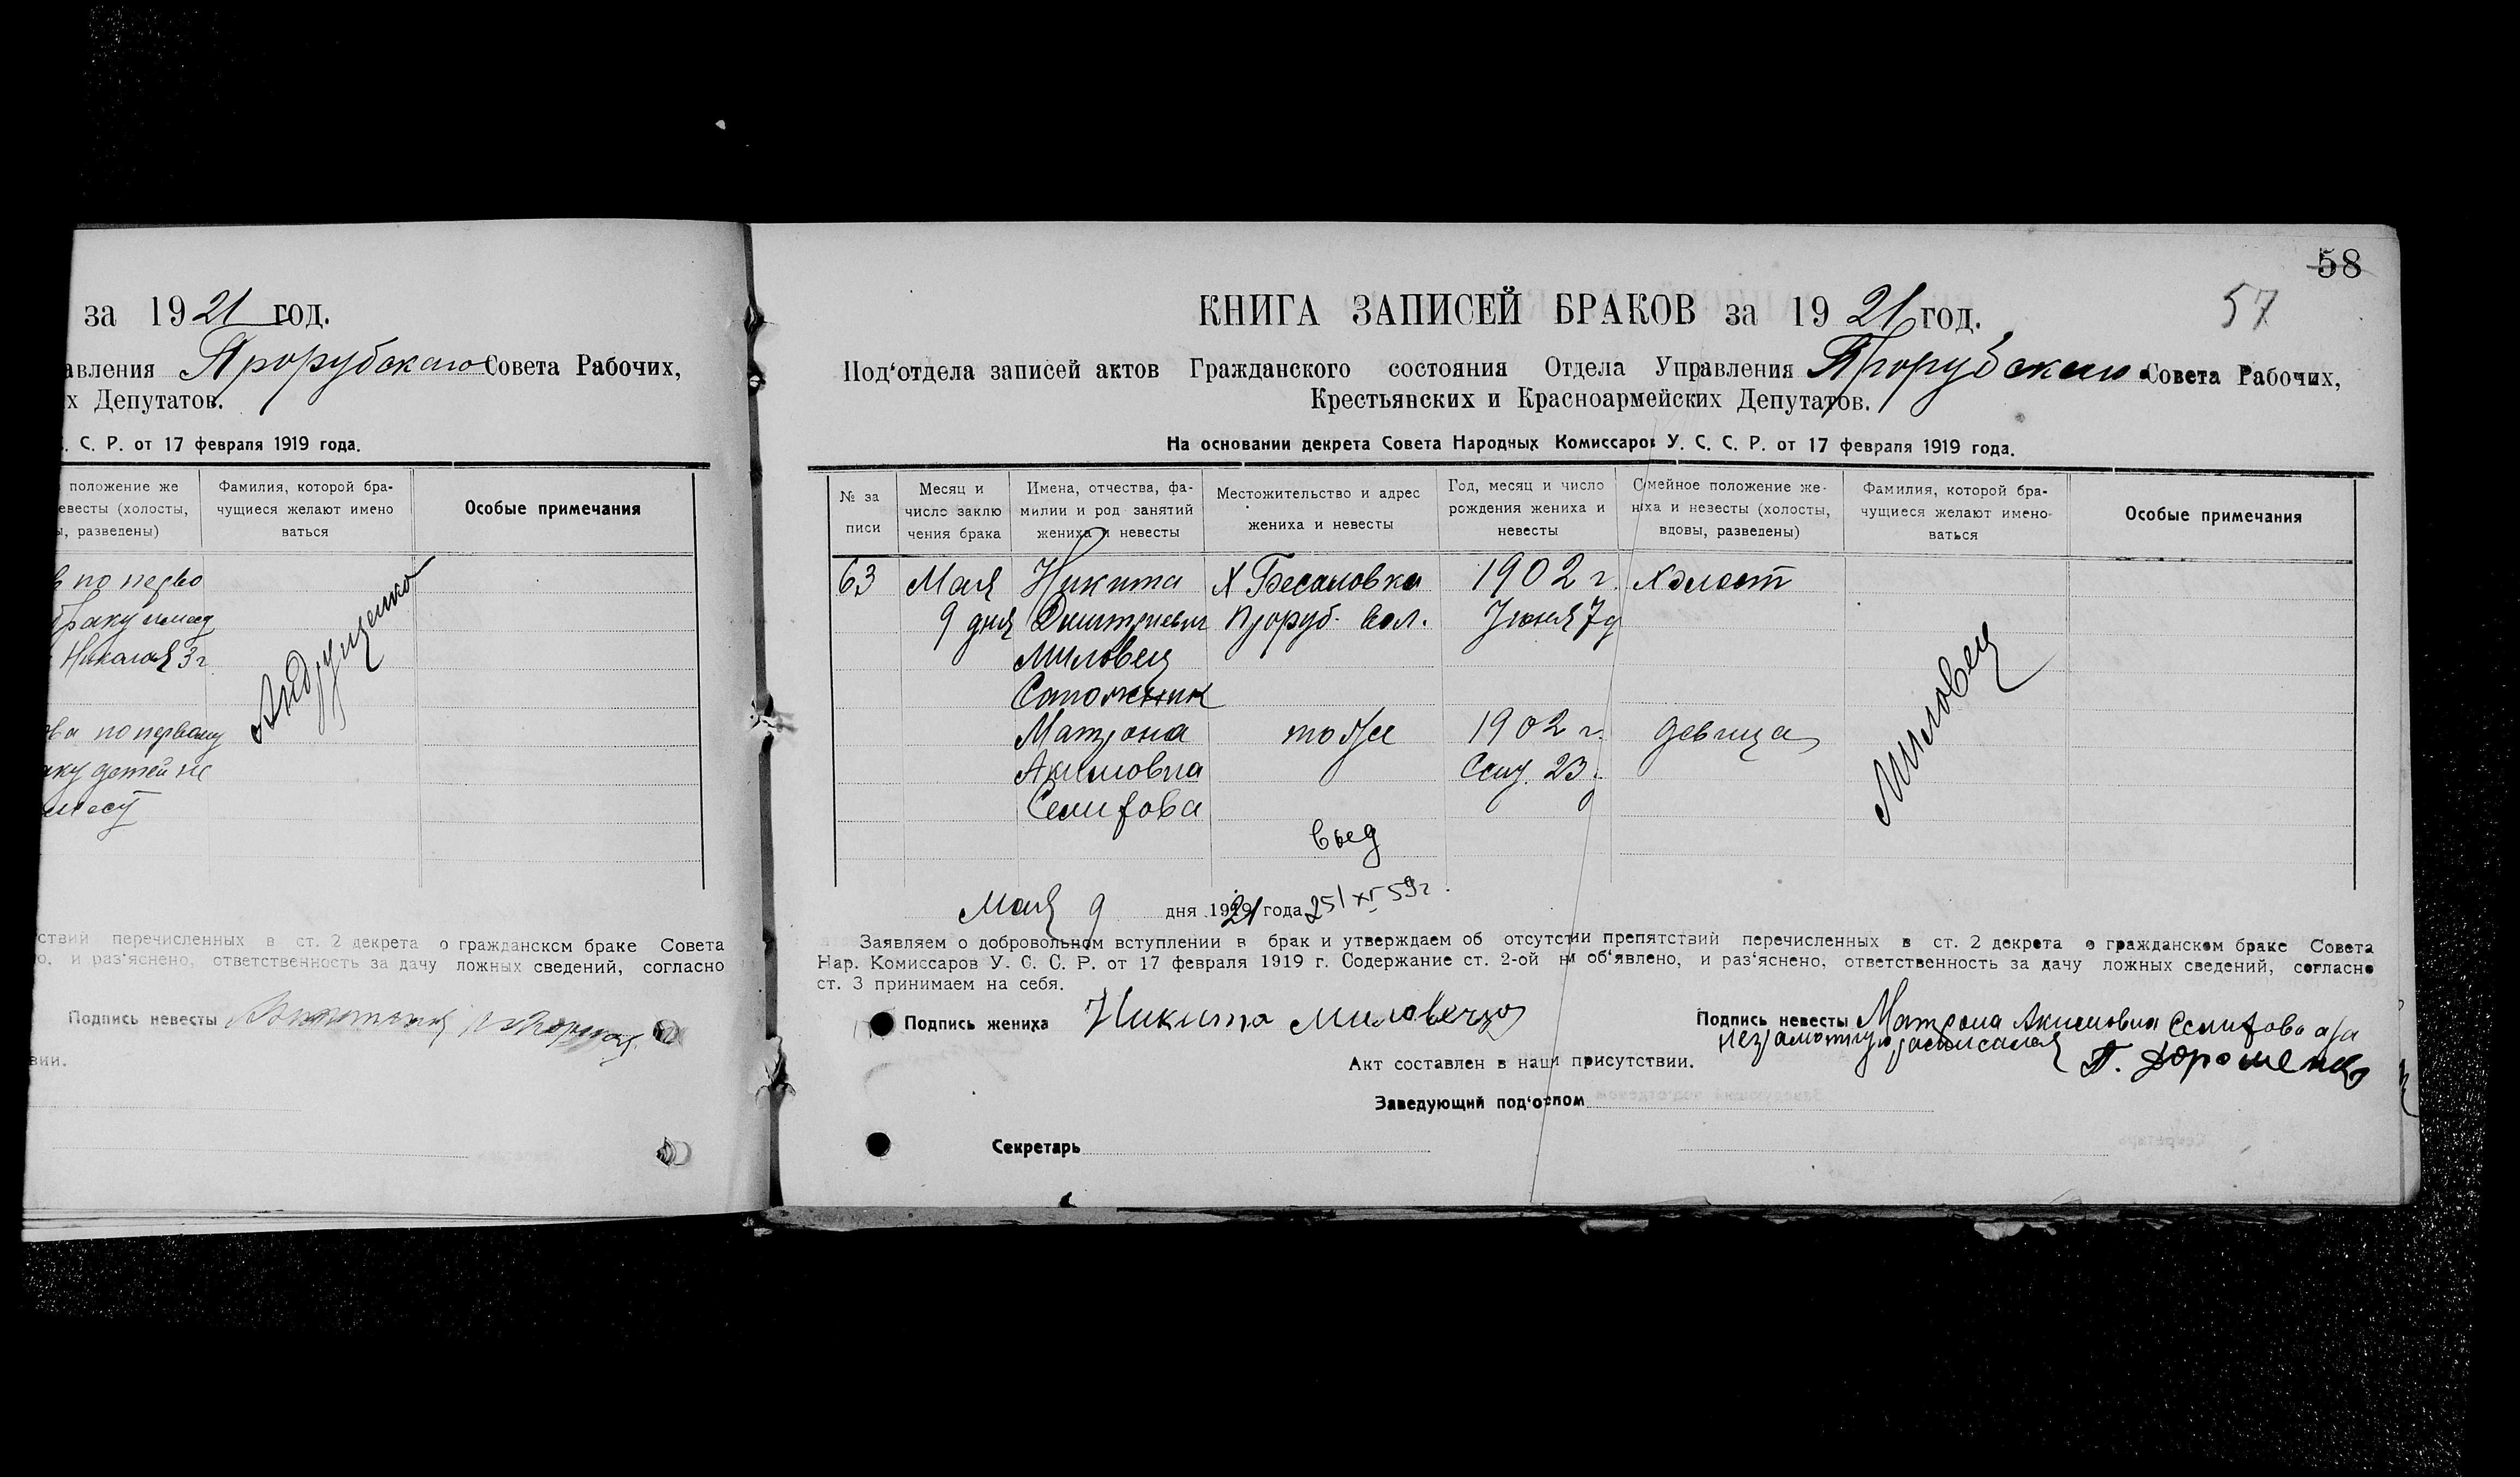 за 1921 год.
авления Прорубскаго Совета Рабочих,
х Депутатов.
. С. Р. от 17 февраля 1919 года.
положение же
евесты (холосты,
ы, разведены)
Фамилия, которой бра-
чущиеся желают имено
ваться
Особые примечания
по перво
браку имеет
Николая 3 г
Андрущенко
ова по первому
аку детей не
имест
ствий перечисленных в ст. 2 декрета о гражданском браке Совета
о, и раз'яснено, ответственность за дачу ложных сведений, согласно
Подпись невесты
вии.
58
57
КНИГА ЗАПИСЕЙ БРАКОВ за 1921 год.
Под'отдела записей актов Гражданского состояния Отдела Управления Прорубскаго Совета Рабочих,
Крестьянских и Красноармейских Депутатов.
На основании декрета Совета Народных Комиссаров У. С. С. Р. от 17 февраля 1919 года.
№ за
писи
Месяц и
число заклю
чения брака
Имена, отчества, фа-
милии и род занятий
жениха и невесты
Местожительство и адрес
жениха и невесты
Год, месяц и число
рождения жениха и
невесты
Семейное положение же-
ниха и невесты (холосты,
вдовы, разведены)
Фамилия, которой бра-
чущиеся желают имено-
ваться
Особые примечания
63 Мая Никита Х Бесаловка 1902 г. Холост
9 дня Дмитриевич Проруб. вол. Июня 7 д
Миловец
Сапожник
Матрона то же 1902 г. девица
Акимовна Сент. 23.
Селифова
Миловец
выд
Мая 9 дня 1921 года 25/XI 59 г.
Заявляем о добровольном вступлении в брак и утверждаем об отсутстии препятствий перечисленных в ст. 2 декрета о гражданском браке Совета
Нар. Комиссаров У. С. С. Р. от 17 февраля 1919 г. Содержание ст. 2-ой нм об'явлено, и раз'яснено, ответственность за дачу ложных сведений, согласно
ст. 3 принимаем на себя.
Подпись жениха Никита Миловец
Подпись невесты Матрона Акимовна Селифова а за
неграмотную расписался П. Дорошенко
Акт составлен в наш присутствии.
Заведующий под'отлом
Секретарь